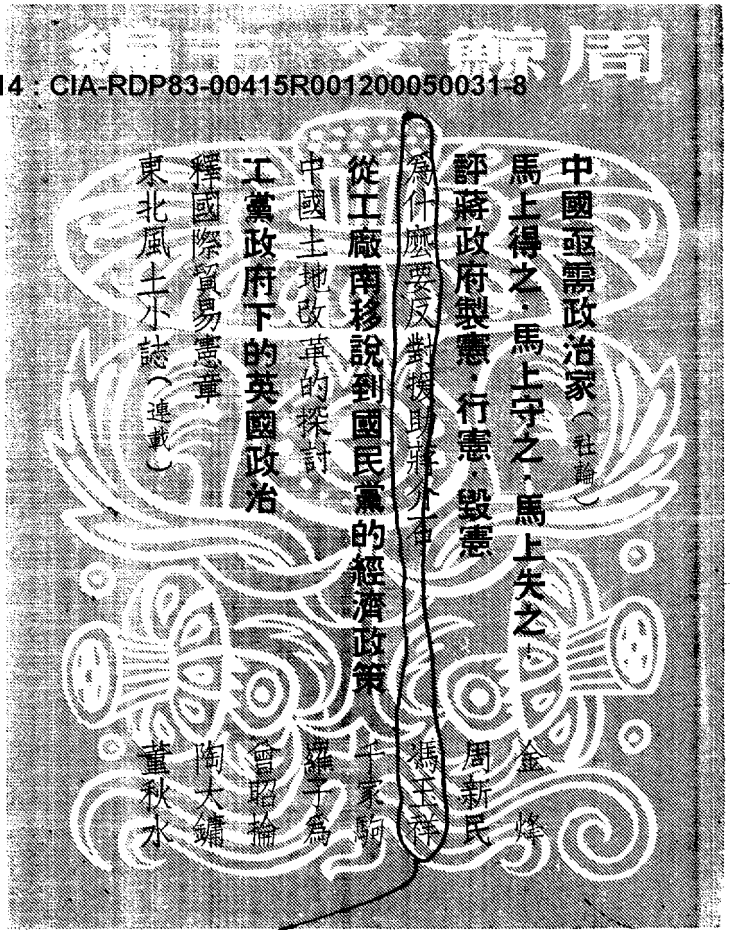 周鯨文主編
14 : CIA-RDP83-00415R001200050031-8
中國亟需政治家（社論）
馬上得之·馬上守之·馬上失之！ 金烽
評蔣政府製憲·行憲·毀憲 周新民
爲什麽要反對援助蔣介石 馮玉祥
從工廠南移說到國民黨的經濟政策 千家駒
中國土地改革的探討 羅子爲
工黨政府下的英國政治 曾昭掄
釋國際貿易憲章 陶大鏞
東北風土小誌（連載） 董秋水